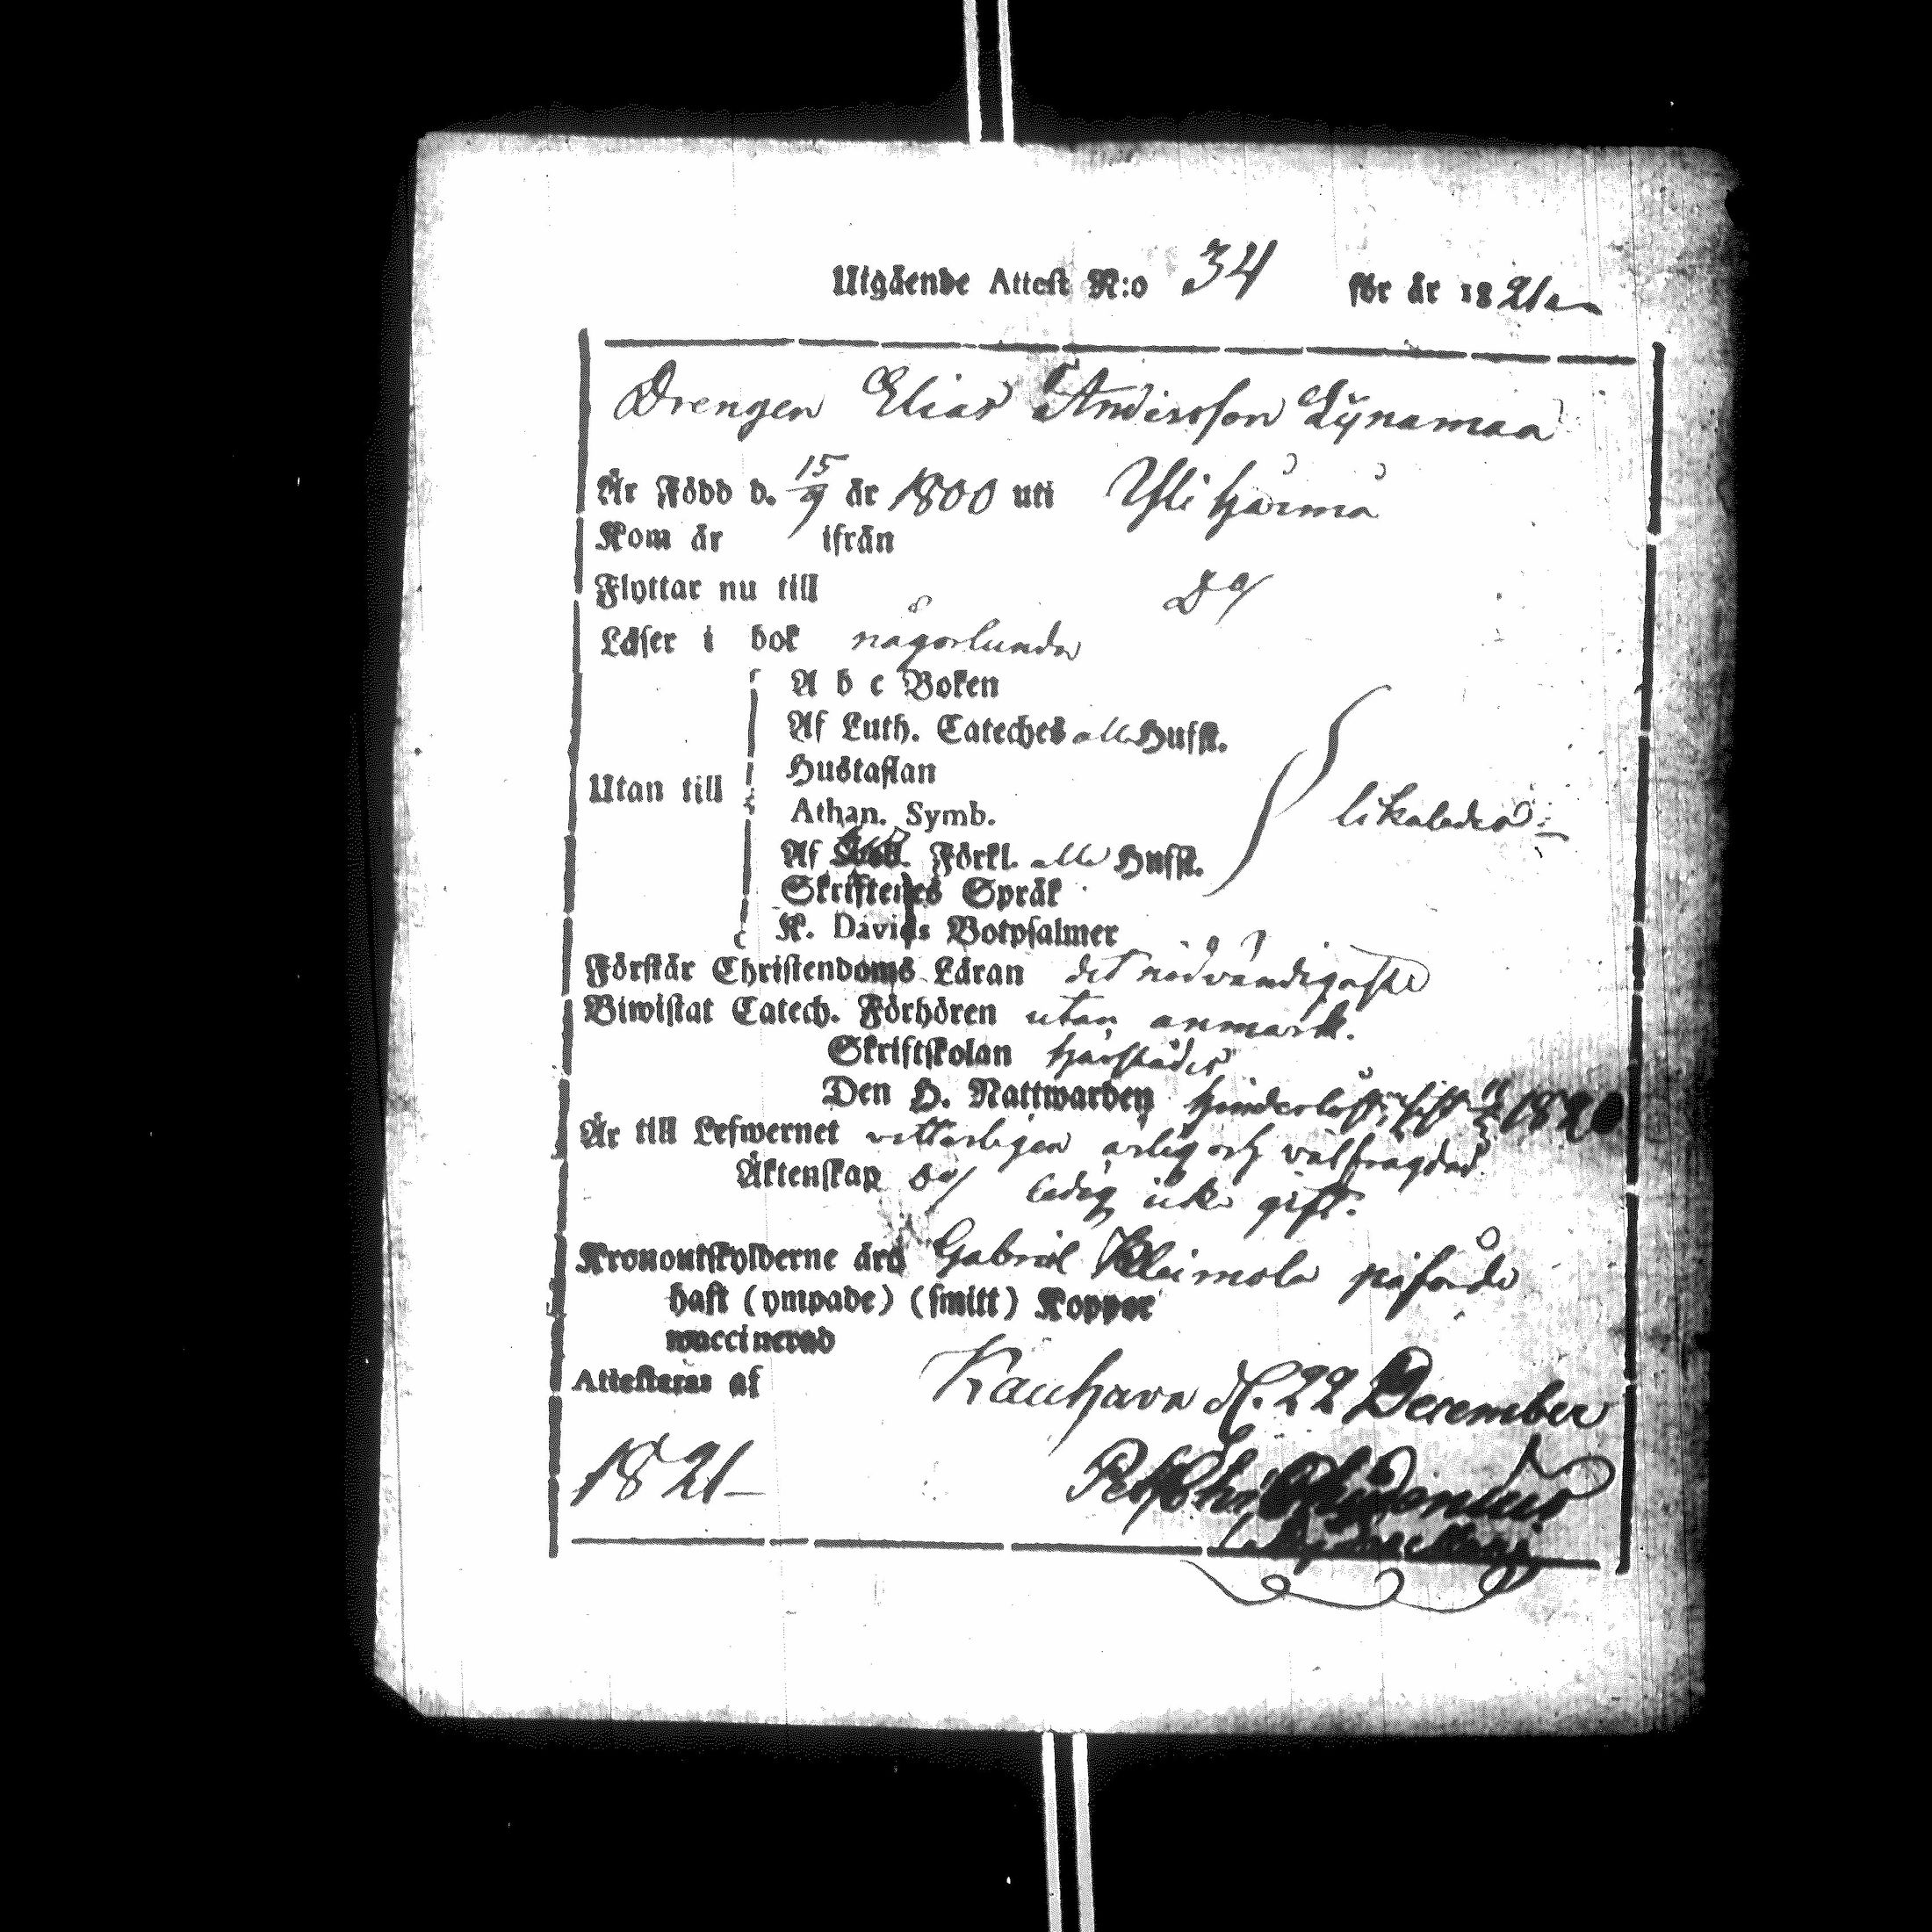 Utgående Attest N:o 34 för år 1821
Drengen Elias Andersson Lÿnamaa
Är Född d. 15/9 år 1800 uti Ylihärmä
Kom år ifrån
Flyttar nu till Do/
Läser i bok någorlunda
A b c Boken
Af Luth. Cateches alla Hufst.
Hustaflan
Utan till
Athan. Symb.
likaledes
Af Förkl. alla Hufst.
Skriftenes Språk
K. Davids Botpsalmer
Förstår Christendoms Läran det nödvändigaste
Biwistat Catech. Förhören utan anmärk.
Skriftskolan härstädes
Den H. Nattwarden hinderlöst, sist 1820
Är till Lefwernet vitterligen ärlig och välfrägdad
Äktenskap do/ ledig icke gift.
Kronoutskylderne äro Gabriel Kleimola påförde
haft (ympade) (smitt) Koppor
waccinerad
Attesteras af Kauhava d. 22 December
1821